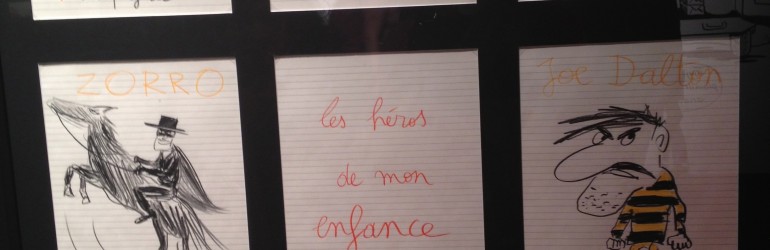 ZORRO
les héros
de mon
enfance
Joe Dalton